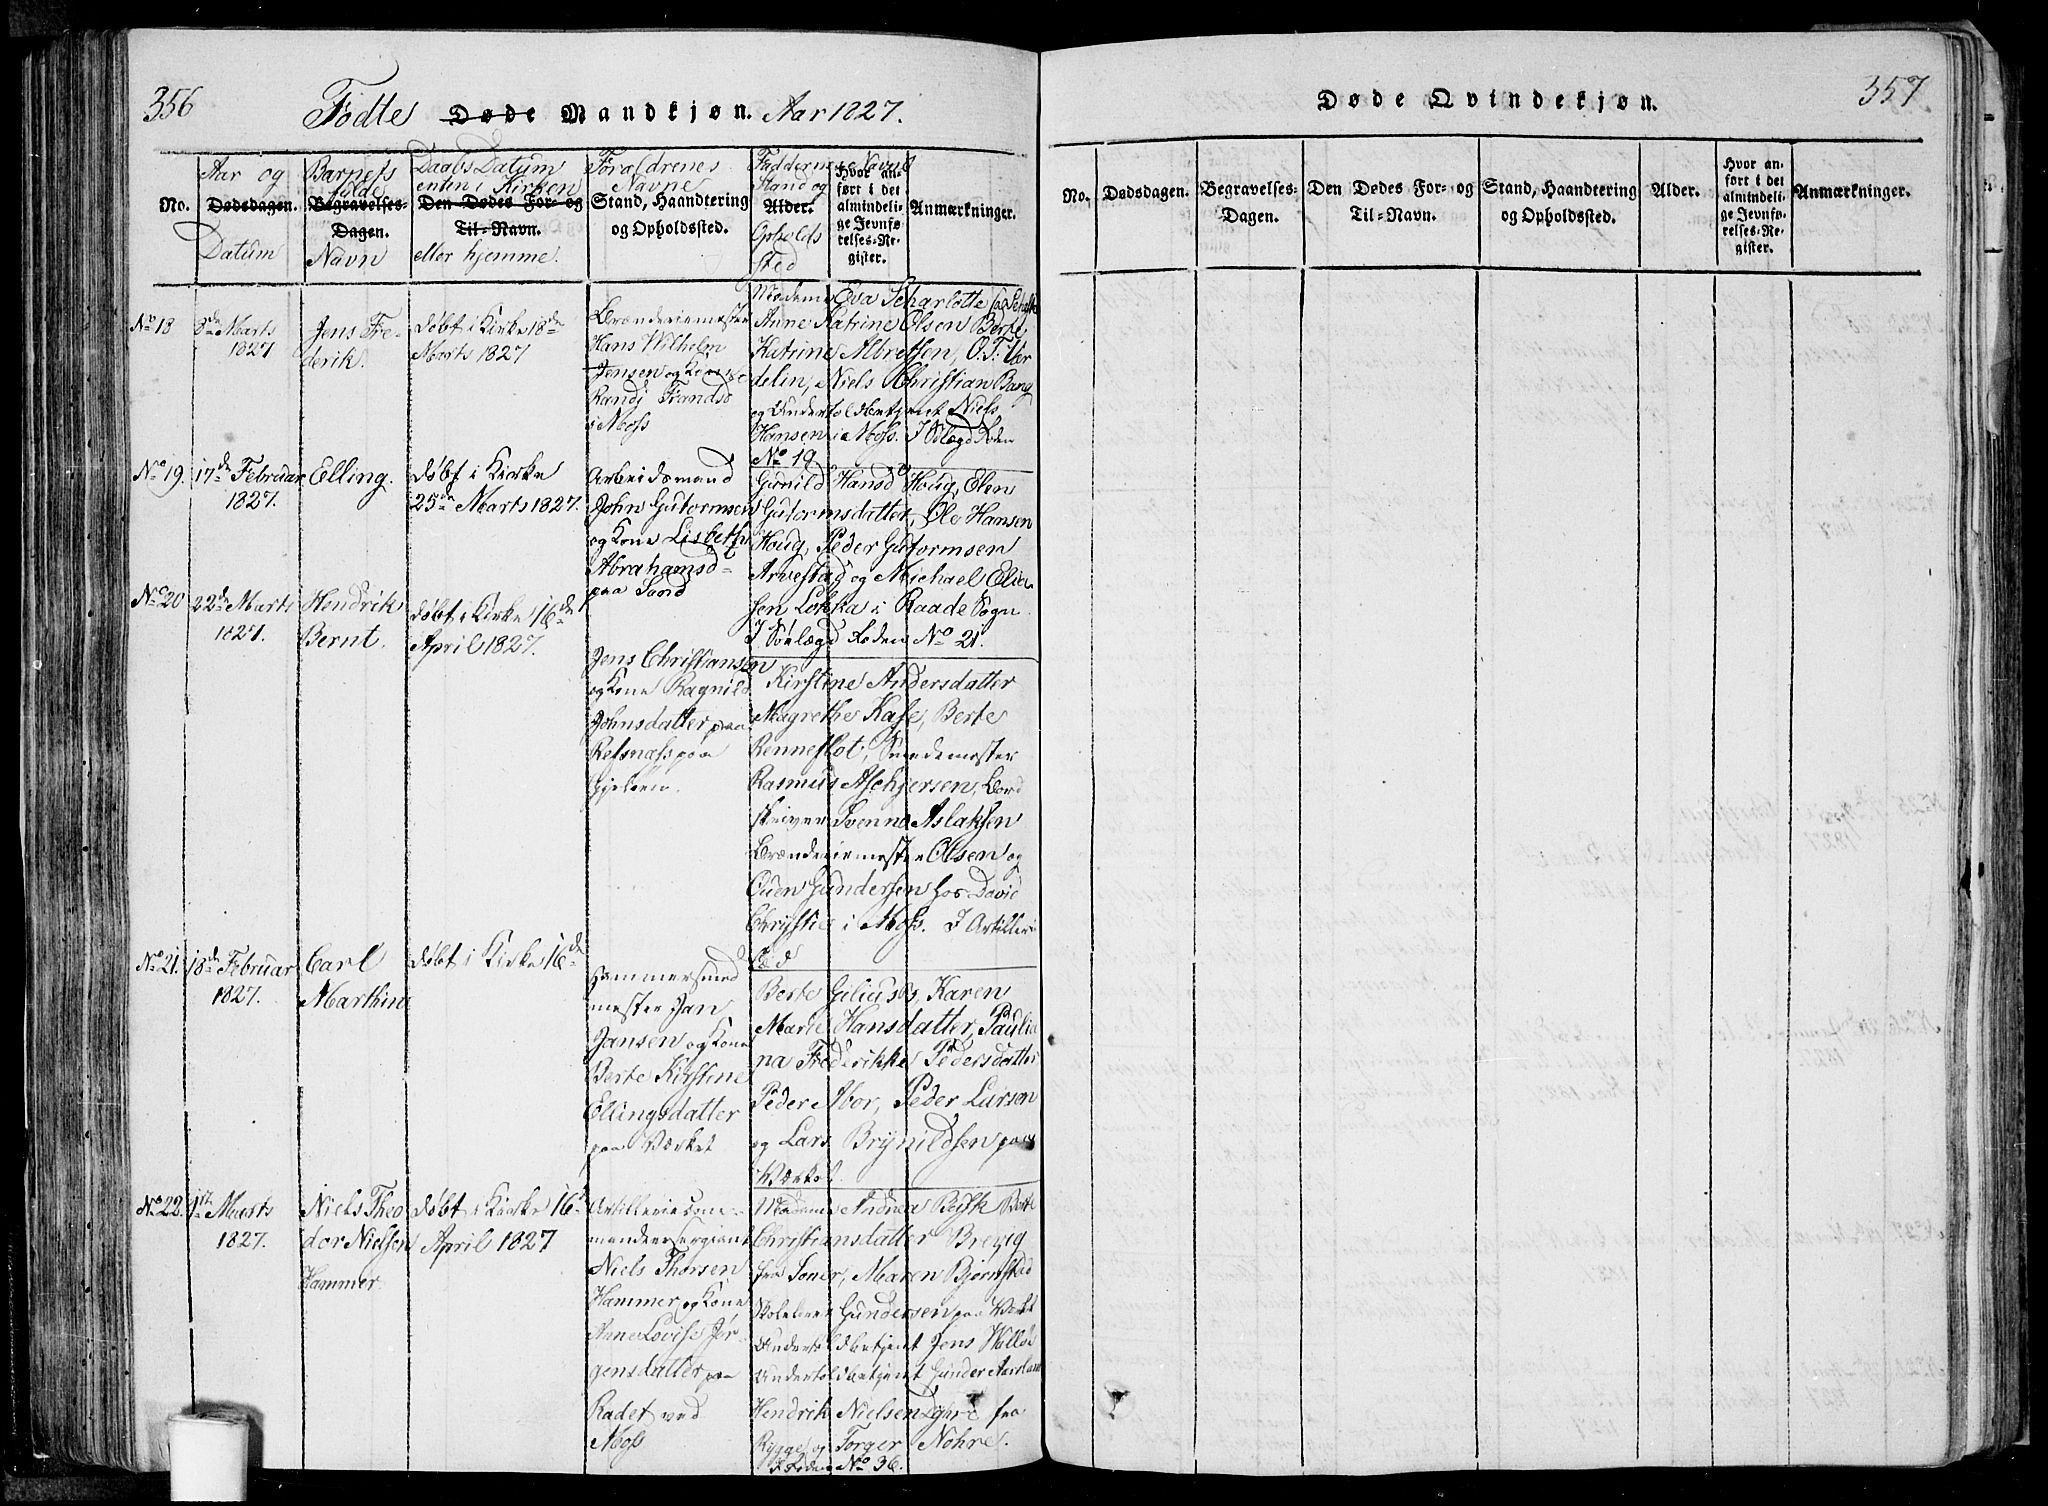 356
Fødte Døde Mandkjøn. Aar 1827.
No.
Aar og
Dødsdagen.
Datum
Barnets
fulde
Begravelses-
Dagen.
Navn
Daabs Datum
enten i Kirken
Den Dødes For- og
Til-Navn.
eller hjemme.
Forældrenes
Navne
Stand, Haandtering
og Opholdssted.
Faddernes Navne
Stand og
Alder.
Opholds
sted
Hvor an-
ført i det
almindeli-
ge Jevnfø-
relses-Re-
gister.
Anmærkninger.
No 18
8de Marts
1827
Jens Fre-
derik.
døbt i Kirke 18de
Marts 1827
Brænderiemester
Hans Wilhelm
Jensen og Kone
Randj Frandsd
i Moss
Madame Eva Scharlotte
Anne Katrine Olsen Berte
Katrine Albretsen, O. T. Ver
delin, Niels Christian Bang
og Undertoldbetjent Niels
Hansen i Moss. I Sølægd Roden
No 19
No 19.
17de Februar
1827.
Elling.
døbt i Kirke
25de Marts 1827.
Arbeidsmand
John Gutormsen
og Kone Lisbeth
Abrahamsd
paa Sand
Gunild Hansd Houg, Elen
Gutormsdatter, Ole Hansen
Houg, Peder Gutormsen
Arvestad og Michael Elia-
sen Løkka i Raade Sogn
I Sølægd Roden No 21.
No 20
22de Marts
1827.
Hendrik
Bernt.
døbt i Kirke 16de
April 1827.
Jens Christiansen
og Kone Ragnild
Johnsdatter paa
Refsnæs paa
Gjeløen.
Kirstine Andersdatter
Magrethe Kase, Berte
Renneflot,
Rasmus Aschjersen, Bord
skriver Svenno Aslaksen
Brænderiemester Olsen og
Ouen Gundersen hos David
Christie i Moss. I Artilleri
Læd
No 21.
18de Februar
1827.
Carl
Marthin
døbt i Kirke 16de
Hammersmed
mester Jan
Jansen og Kone
Berte Kirstine
Ellingsdatter
paa Værket
Berte Giliusd, Karen
Marie Hansdatter, Pauli
na Frederikke Pedersdatter
Peder Abor, Peder Larsen
og Lars Brynildsen paa
Værket
No 22.
1ste Marts
1827.
Niels Theo
dor Nielsen
Hammer
døbt i Kirke 16de
April 1827
Artillerie Com-
mandeersergiant
Niels Thorsen
Hammer og Kone
Anne Lovise Jør-
gensdatter paa
Radet ved
Moss
Madame Andrea Beisk Berte
Christiansdatter Brevig
fra Soner, Maren Bjørnstad
Skolelærer Gundersen paa Værk
Undertoldbetjent Jens Welløe
Undertoldbetjent Gunder
Hendrik Nielsen fra
Rygge og Torger Nøhre.
I Roden No 36.
357
Døde Qvindekjøn.
No.
Dødsdagen.
Begravelses-
Dagen.
Den Dødes For- og
Til-Navn.
Stand, Haandtering
og Opholdssted.
Alder.
Hvor an-
ført i det
almindeli-
ge Jevnfø-
relses-Re-
gister.
Anmærkninger.